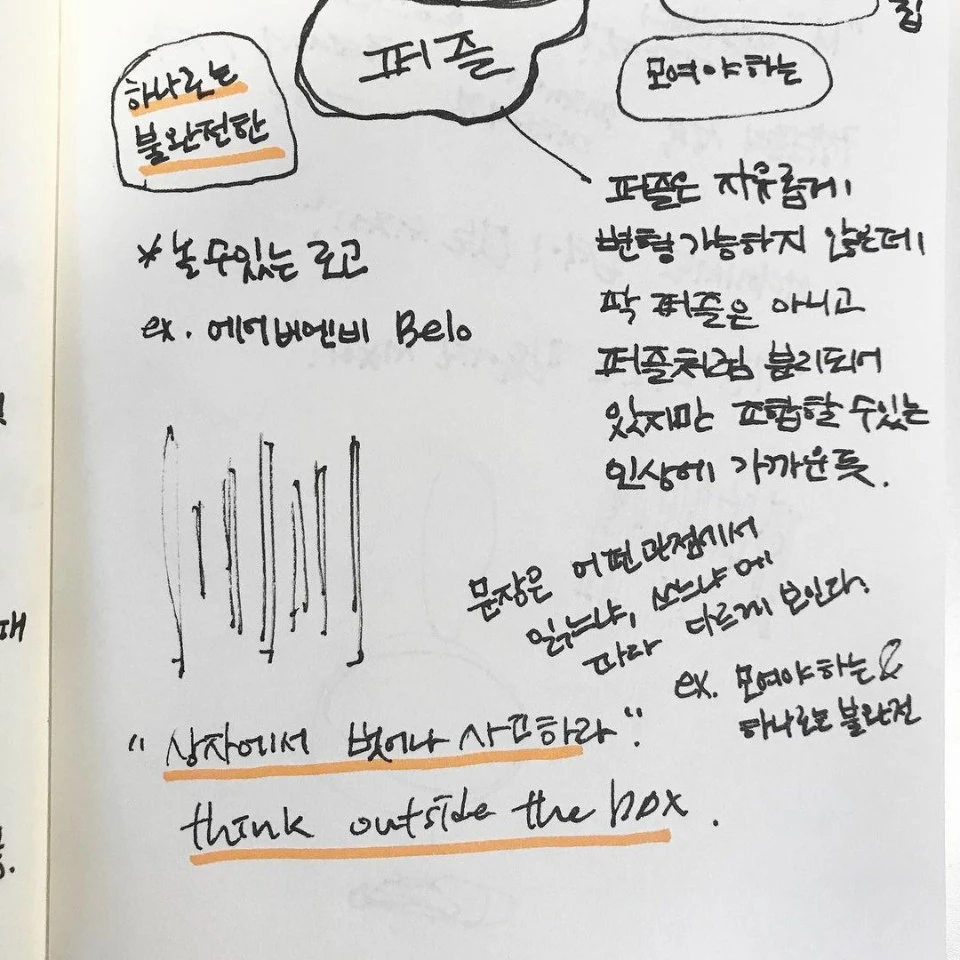 퍼즐
하나로는
불완전한
모여야하는
집
퍼즐은 자유롭게
변형가능하지 않은데
딱 퍼즐은 아니고
퍼즐처럼 분리되어
있지만 조합할 수있는
인상에 가까운듯.
* 놀 수있는 로고
ex. 에어비엔비 Belo
문장은 어떤관점에서
읽느냐, 쓰느냐에
따라 다르게 보인다.
ex. 모여야하는 &
하나로는 불완전
"상자에서 벗어나 사고하라".
think outside the box.